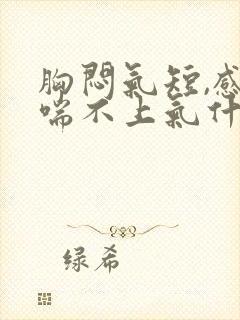 胸悶氣短,感
喘不上氣什
绿希